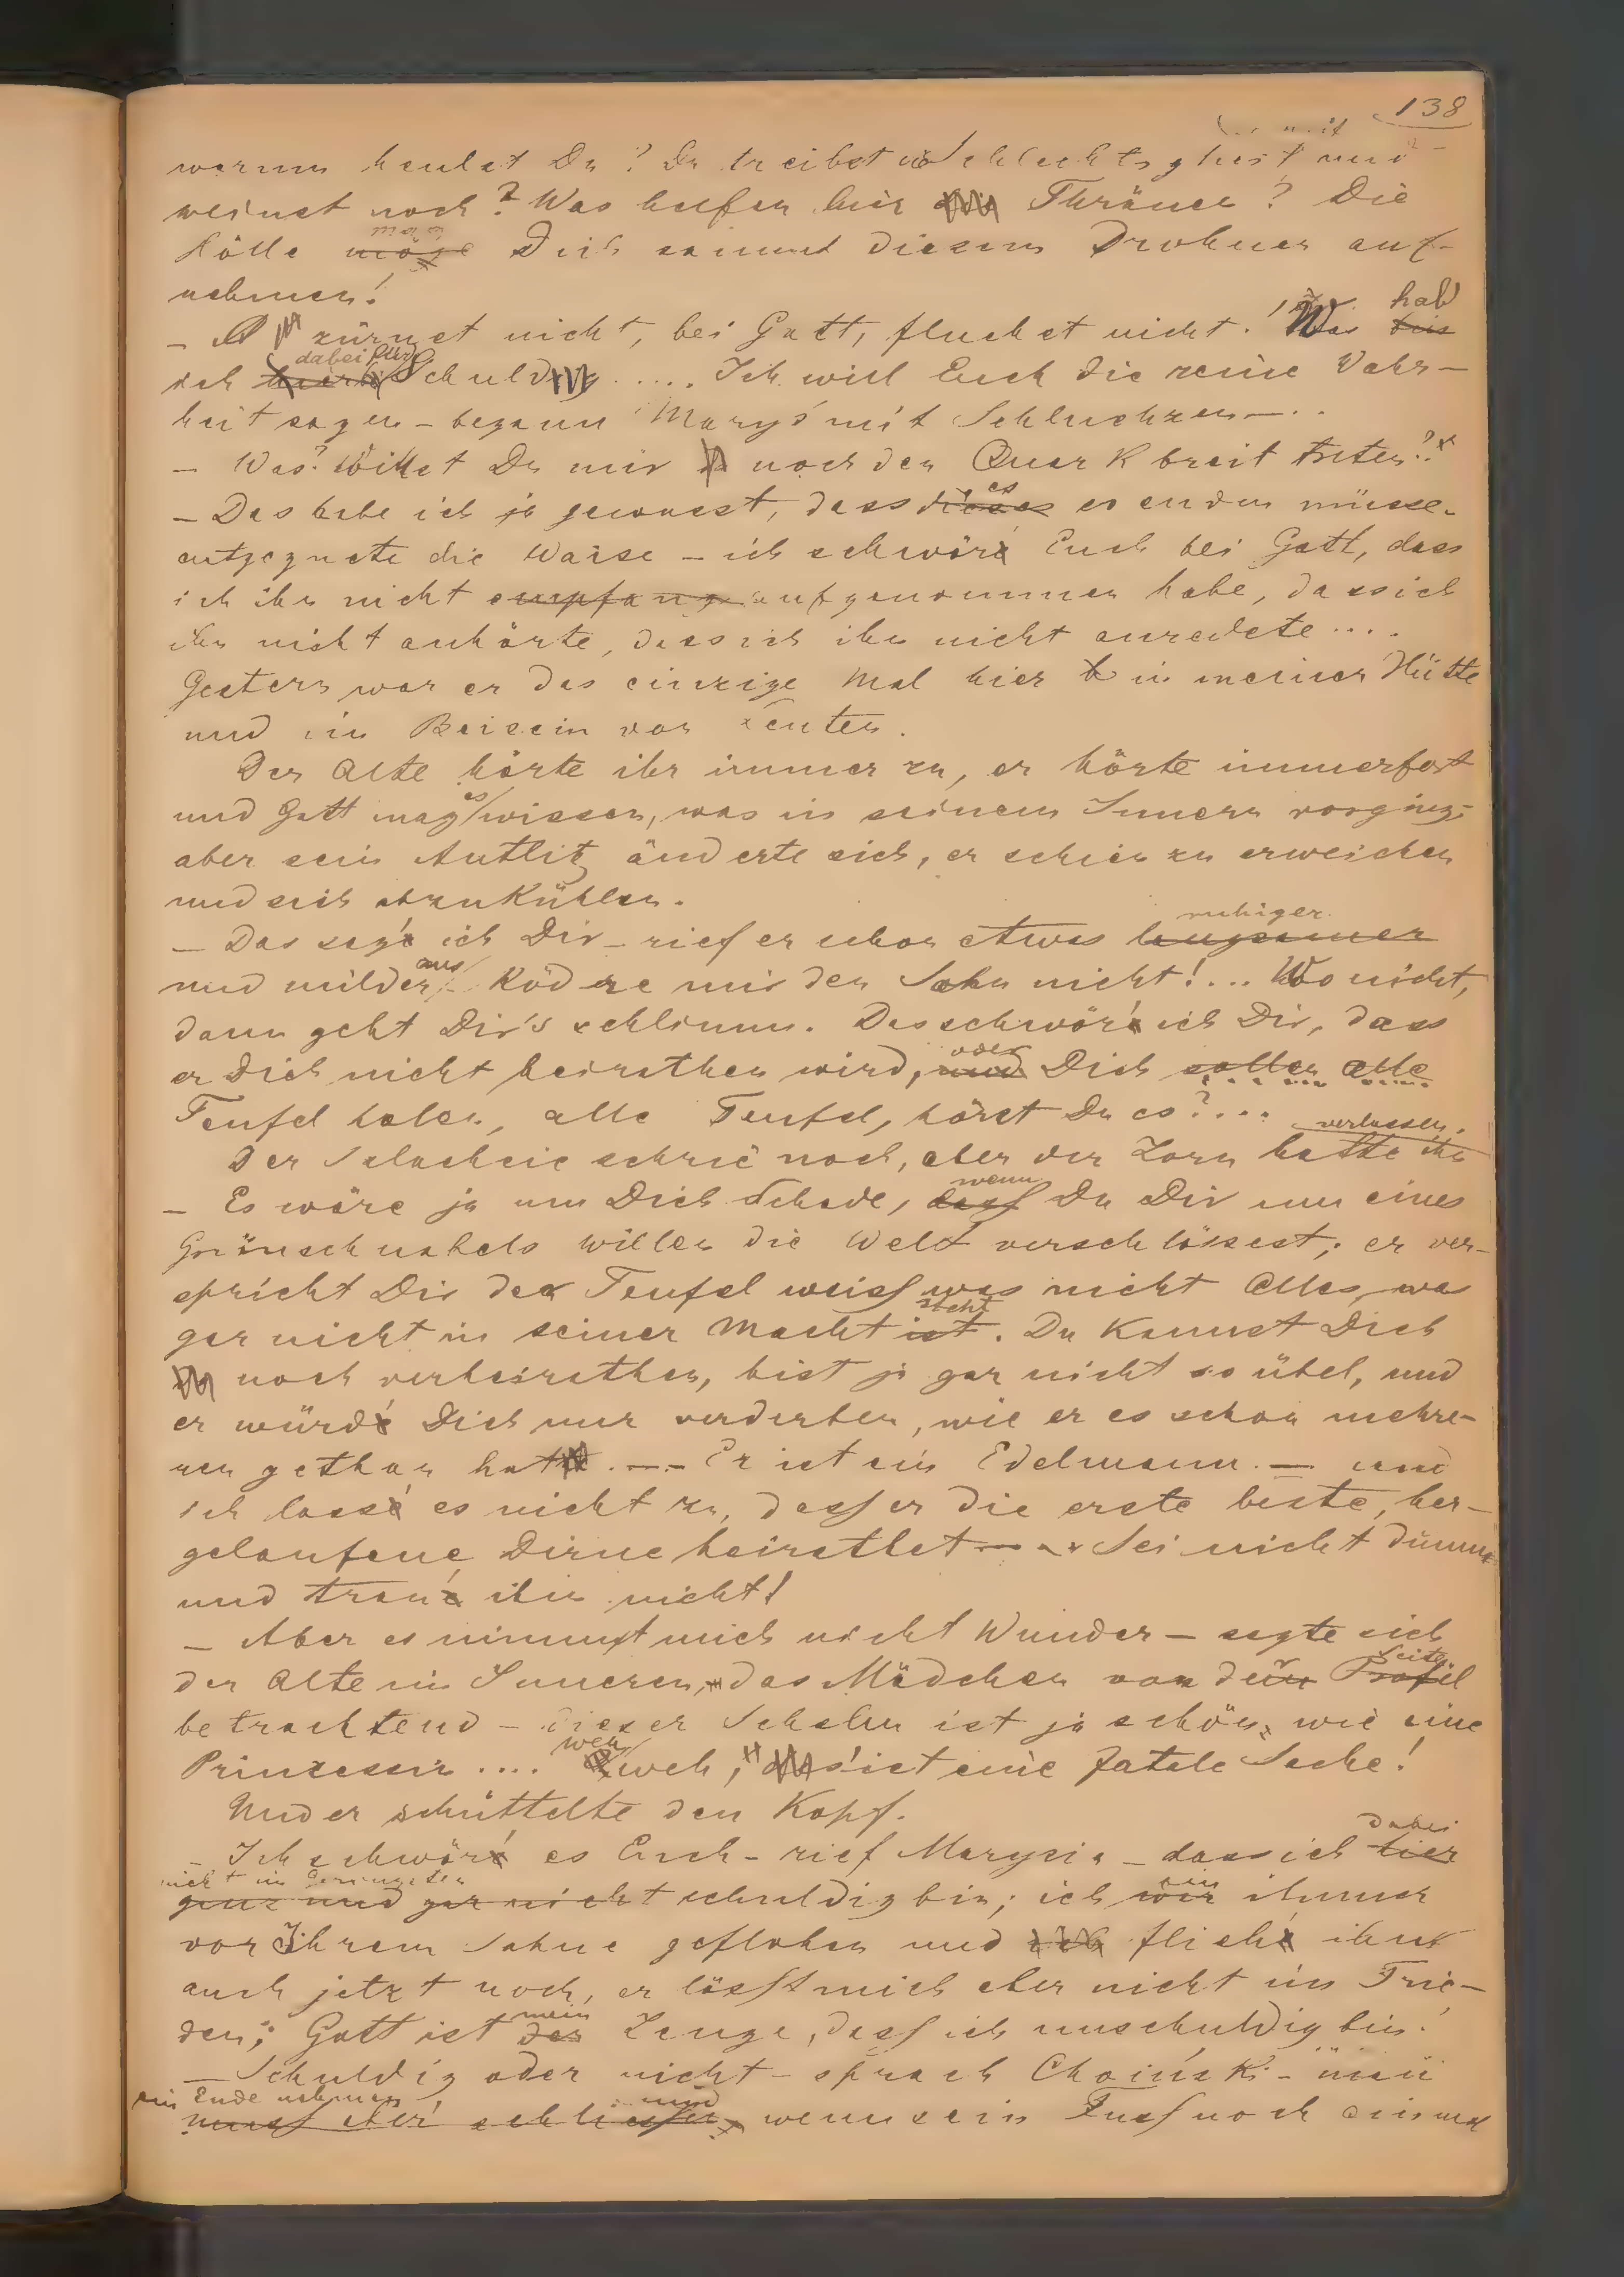 138
warum heulst Du? Du treibst und
weinst noch? Was helfen hier Thränen? Die
Hölle möge mag Dich sammt diesem Drohnen auf-
nehmen!
– zürnet nicht, bei Gott, fluchet nicht! Was bin hab'
ich dabei für Schuld ..... Ich will Euch die reine Wahr-
heit sagen – begann Maryś mit Schluchzen – ..
– Was? Willst Du mir noch den Quark breit treten?!
– Das habe ich ja gewusst, dass dieses es so enden müsse.
entgegnete die Waise – ich schwör' Euch bei Gott, dass
ich ihn nicht empfang aufgenommen habe, dass ich
ihn nicht anhörte, dass ich ihn nicht anredete ....
Gestern war er das einzige Mal hier in meiner Hütte
und im Beisein von Leuten.
Der Alte hörte ihr immer zu, er hörte immerfort
und Gott mag es wissen, was in seinem Innern vorging;
aber sein Antlitz änderte sich, er schien zu erweichen
und sich abzukühlen.
– Das sag' ich Dir – rief er schon etwas langsamer ruhiger
und milder aus – Ködre mir den Sohn nicht!... Wo nicht,
dann geht Dir's schlimm. Das schwör' ich Dir, dass
er Dich nicht heirathen wird, und oder Dich sollen alle
Teufel holen, alle Teufel, hörst Du es?....
Der Schlachcic schrie noch, aber der Zorn hatte ihn verlassen.
– Es wäre ja um Dich Schade, dass wenn Du Dir um eines
Grünschnabels willen die Welt verschlössest; er ver-
spricht Dir der Teufel weiss was nicht Alles, was
gar nicht in seiner Macht ist steht. Du kannst Dich
noch verheirathen, bist ja gar nicht so übel, und
er würd' Dich nur verderben, wie er es schon mehre-
ren gethan hat. –– Er ist ein Edelmann. – und
ich lass' es nicht zu, dass er die erste beste, her-
gelaufene Dirne heirathet – .. Sei nicht dumm
und trau' ihm nicht!
– Aber es nimmt mich nicht Wunder – sagte sich
der Alte im Inneren, das Mädchen von dem der Profil Seite
betrachtend – dieser Schelm ist ja schön, wie eine
Prinzessin .... weh, weh, 's ist eine fatale Sache!
Und er schüttelte den Kopf.
– Ich schwör' es Euch – rief Marysia – dass ich hier dabei
ganz und gar nicht nicht im Geringsten schuldig bin; ich wär bin immer
vor Ihrem Sohne geflohen und ich flieh' ihn
auch jetzt noch, er lässt mich aber nicht im Frie-
den; Gott ist der mein Zeuge, dass ich unschuldig bin!
– Schuldig oder nicht – sprach Choiński –
muss aber schliessen ein Ende nehmen und wenn sein Fuss noch einmal